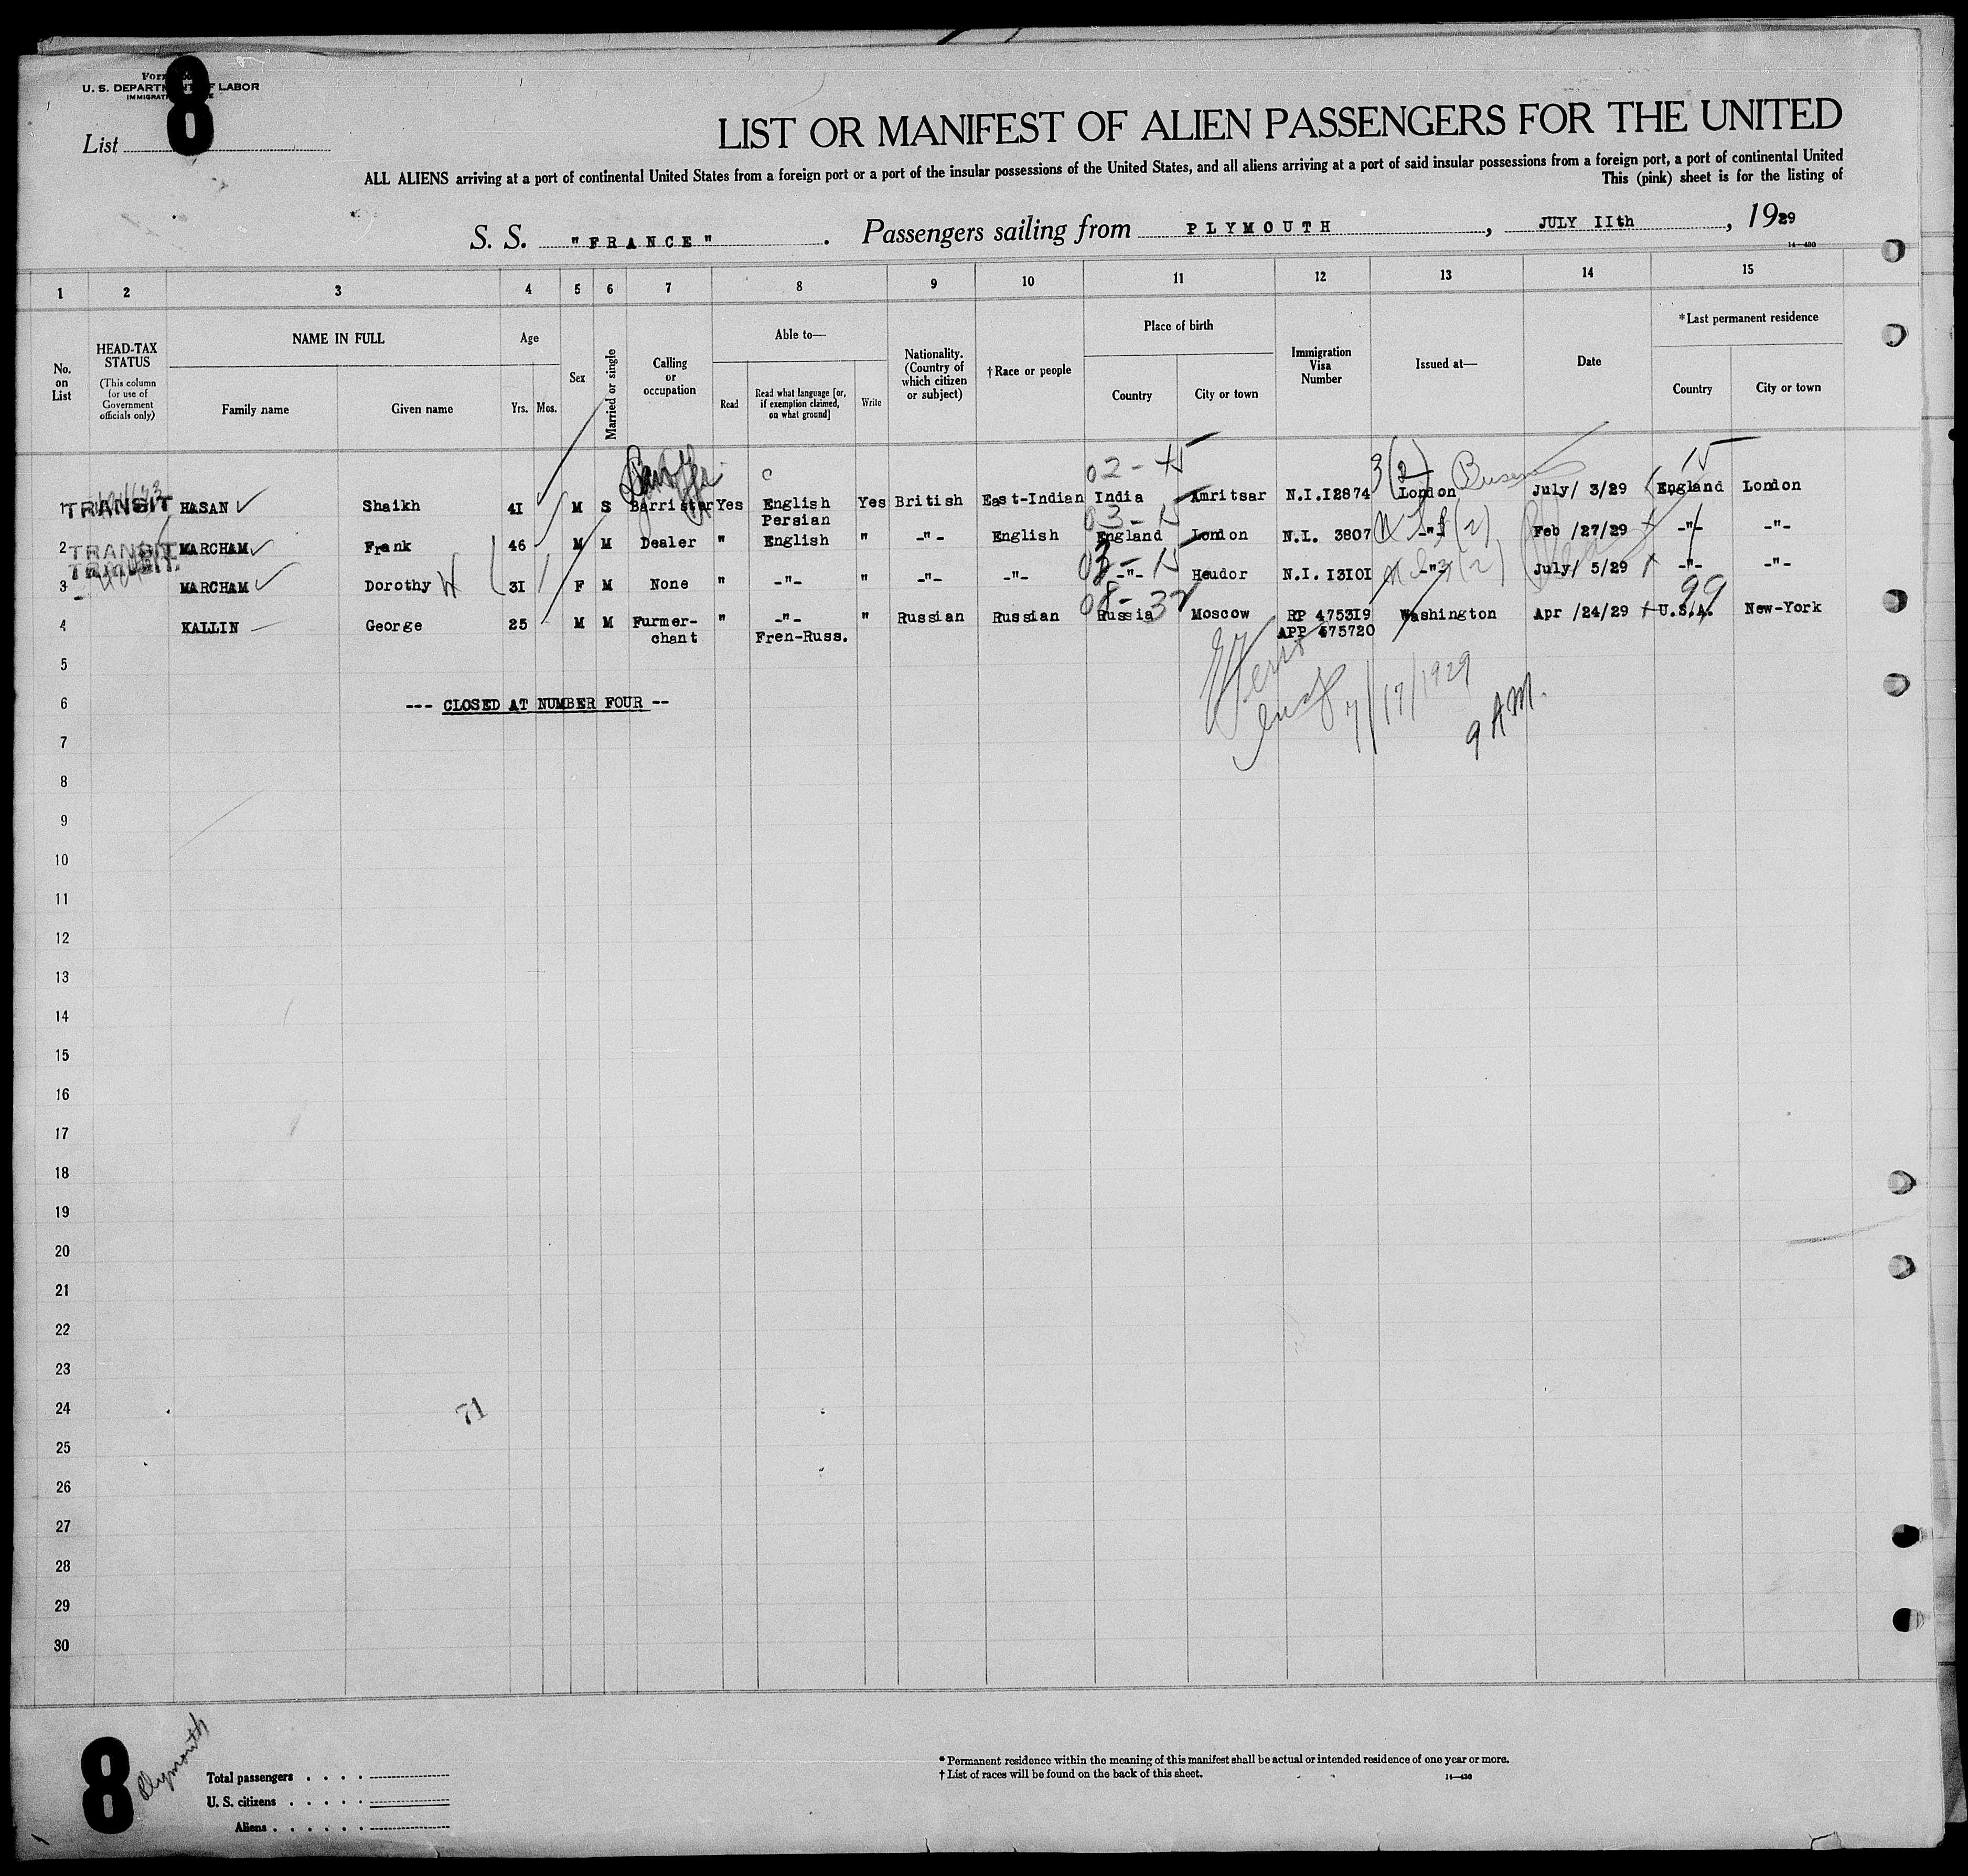 8
U. S. DEPARTMENT OF LABOR
List
LIST OR MANIFEST OF ALIEN PASSENGERS FOR THE UNITED
ALL ALIENS arriving at a port of continental United States from a foreign port or a port of the insular possessions of the United States, and all aliens arriving at a port of said insular possessions from a foreign port, a port of continental United
This (pink) sheet is for the listing of
S. S. "FRANCE" . Passengers sailing from PLYMOUTH , JULY IIth , 1929
14—430
1 2 3 4 5 6 7 8 9 10 11 12 13 14 15
No. on List
HEAD-TAX STATUS
(This column for use of Government officials only)
NAME IN FULL
Family name Given name
Age
Yrs. Mos.
Sex
Married or single
Calling or occupation
Able to—
Read
Read what language [or, if exemption claimed, on what ground]
Write
Nationality. (Country of which citizen or subject)
† Race or people
Place of birth
Country City or town
Immigration Visa Number
Issued at—
Date
* Last permanent residence
Country City or town
02 - 15 3(2) 15
1 TRANSIT HASAN Shaikh 4I M S Barrister Yes English Yes British East-Indian India Amritsar N.I.I2874 London July/ 3/29 England London
Persian
03 - 15
2 TRANSIT MARCHAM Frank 46 M M Dealer " English " -"- English England London N.I. 3807 -"- Feb /27/29 -"- -"-
TRANSIT
03 - 15
3 MARCHAM Dorothy W 3I F M None " -"- " -"- -"- -"- Heudor N.I. I3I0I -"- July/ 5/29 -"- -"-
08 - 32 99
4 KALLIN George 25 M M Furmer- " -"- " Russian Russian Russia Moscow RP 4753I9 Washington Apr /24/29 U.S.A. New-York
chant Fren-Russ. APP 675720
5
6 --- CLOSED AT NUMBER FOUR --
7/17/1929
9 AM.
7
8
9
10
11
12
13
14
15
16
17
18
19
20
21
22
23
24
71
25
26
27
28
29
30
8
Plymouth
Total passengers
U. S. citizens
Aliens
* Permanent residence within the meaning of this manifest shall be actual or intended residence of one year or more.
† List of races will be found on the back of this sheet.
14—430